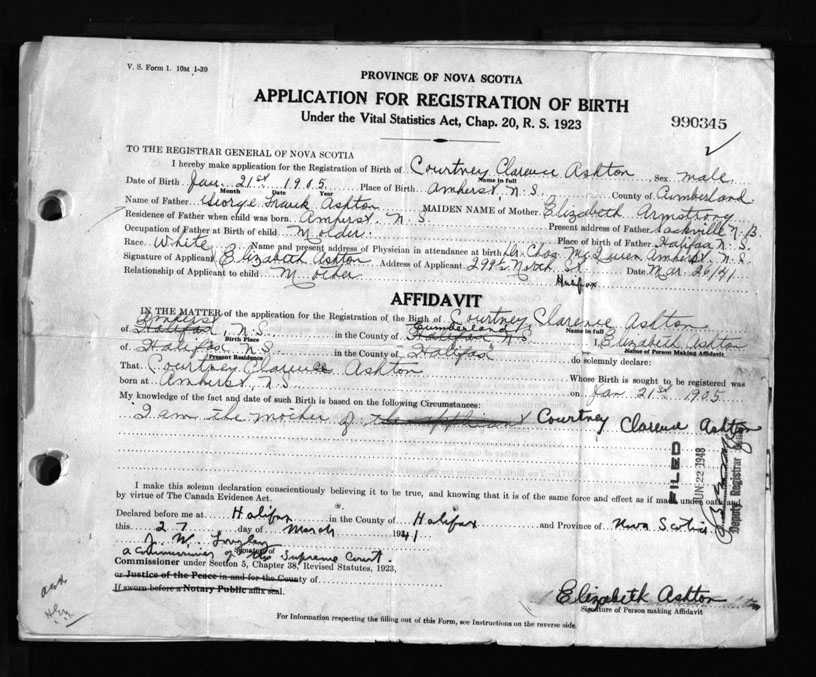 V. S. Form 1. 10M 1-39
PROVINCE OF NOVA SCOTIA
APPLICATION FOR REGISTRATION OF BIRTH
Under the Vital Statistics Act, Chap. 20, R. S. 1923
990345
TO THE REGISTRAR GENERAL OF NOVA SCOTIA
I hereby make application for the Registration of Birth of Courtney Clarence Ashton Sex male
Name in full
Date of Birth Jan. 21st 1905 Place of Birth Amherst, N.S. County of Cumberland
Month Date Year
Name of Father George Frank Ashton MAIDEN NAME of Mother Elizabeth Armstrong
Residence of Father when child was born Amherst, N.S. Present address of Father Sackville N.B.
Occupation of Father at Birth of child Molder. Place of birth of Father Halifax N.S.
Race White Name and present address of Physician in attendance at birth Dr. Chas. Amherst, N.S.
Signature of Applicant Elizabeth Ashton Address of Applicant 299½ North St. Date Mar. 26/41
Halifax
Relationship of Applicant to child Mother
AFFIDAVIT
IN THE MATTER of the application for the Registration of the Birth of Courtney Clarence Ashton
Name in full
Amherst Cumberland
of Halifax, N.S. in the County of Halifax N.S. I, Elizabeth Ashton
Birth Place Name of Person Making Affidavit
of Halifax N.S. in the County of Halifax do solemnly declare:
Present Residence
That Courtney Clarence Ashton Whose Birth is sought to be registered was
born at Amherst, N.S. on Jan 21st 1905
My knowledge of the fact and date of such Birth is based on the following Circumstances:
I am the mother of the applicant Courtney Clarence Ashton
FILED
JUN 22 1948
Deputy Registrar
I make this solemn declaration conscientiously believing it to be true, and knowing that it is of the same force and effect as if made under oath and
by virtue of The Canada Evidence Act.
Declared before me at Halifax in the County of Halifax and Province of Nova Scotia
this 27 day of March 1941
J. W.
Signature of
a Commissioner of the Supreme Court.
Commissioner under Section 5, Chapter 38, Revised Statutes, 1923,
or Justice of the Peace in and for the County of
If sworn before a Notary Public affix seal.
Elizabeth Ashton
Signature of Person making Affidavit
For Information respecting the filling out of this Form, see Instructions on the reverse side.